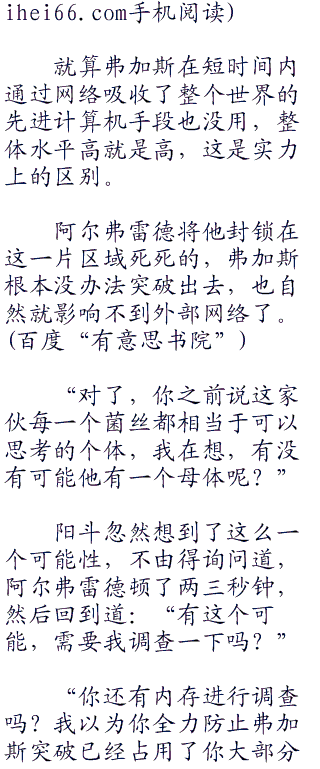 ihei66.com手机阅读)
就算弗加斯在短时间内
通过网络吸收了整个世界的
先进计算机手段也没用，整
体水平高就是高，这是实力
上的区别。
阿尔弗雷德将他封锁在
这一片区域死死的，弗加斯
根本没办法突破出去，也自
然就影响不到外部网络了。
(百度“有意思书院”)
“对了，你之前说这家
伙每一个菌丝都相当于可以
思考的个体，我在想，有没
有可能他有一个母体呢？”
阳斗忽然想到了这么一
个可能性，不由得询问道，
阿尔弗雷德顿了两三秒钟，
然后回到道：“有这个可
能，需要我调查一下吗？”
“你还有内存进行调查
吗？我以为你全力防止弗加
斯突破已经占用了你大部分